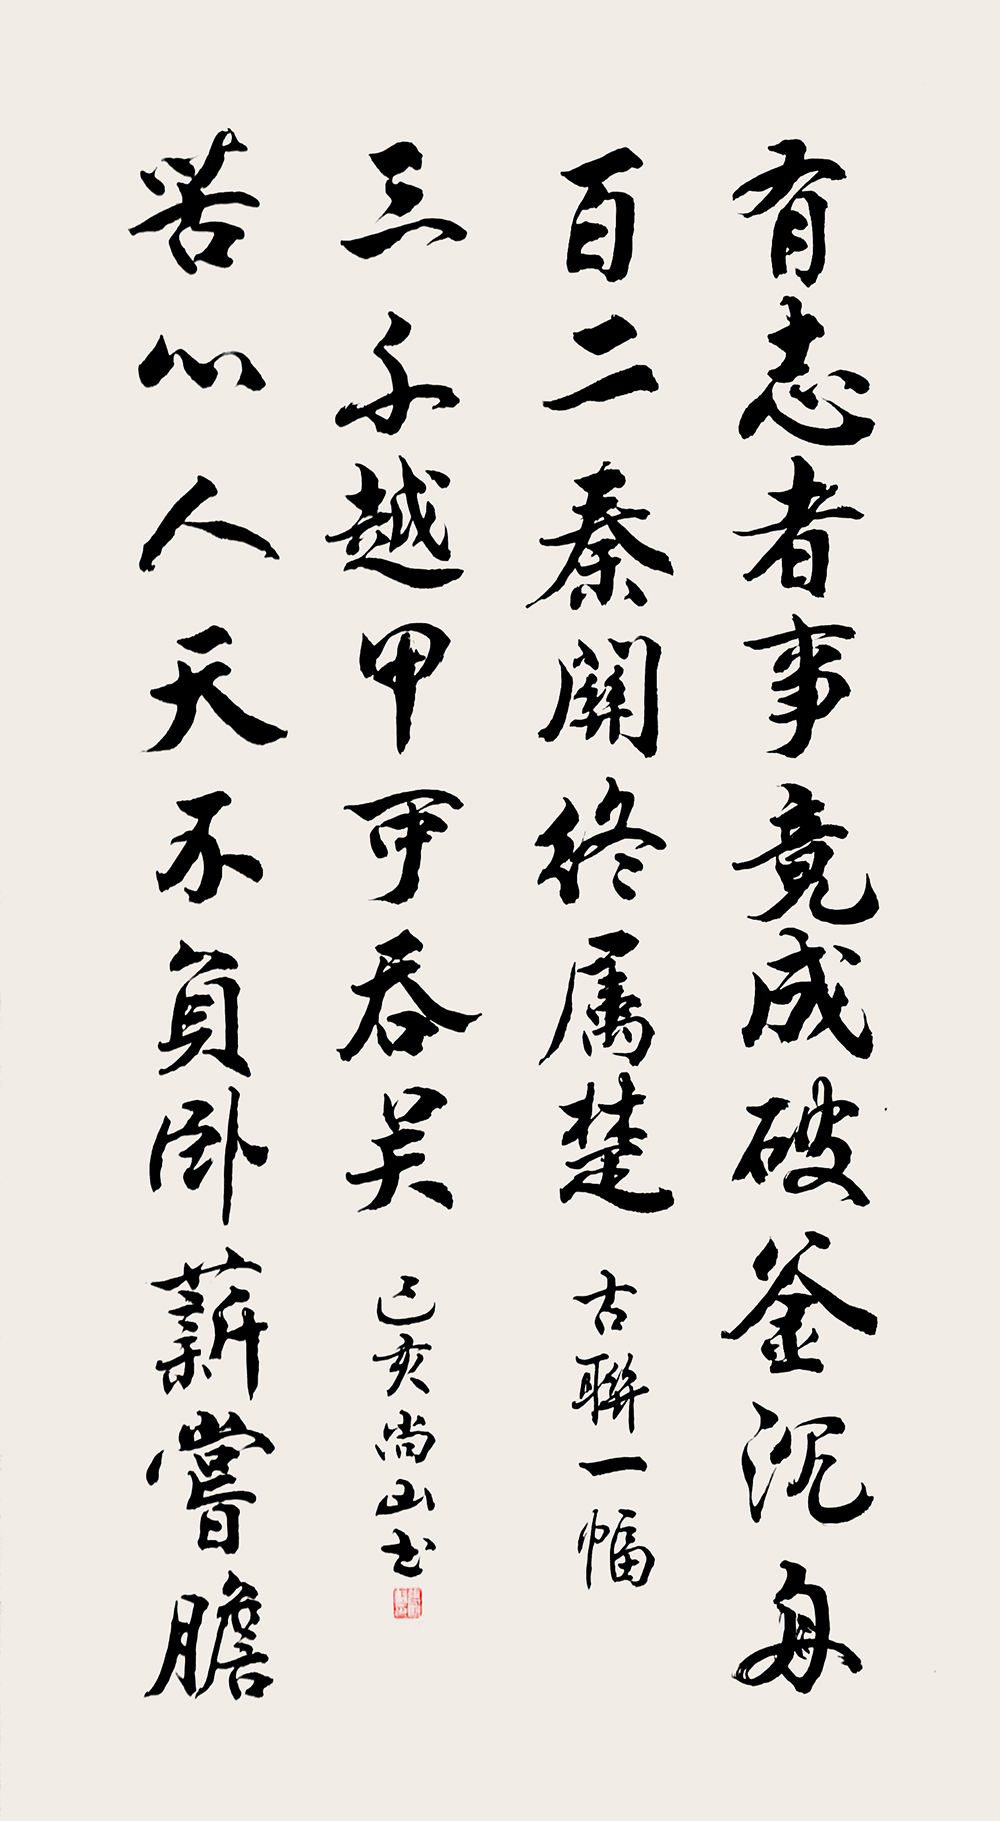 有志者事竟成破釜沉舟
百二秦關終属楚
古聯一幅
苦心人天不負卧薪嘗膽
三千越甲可吞吴
己亥尚山书